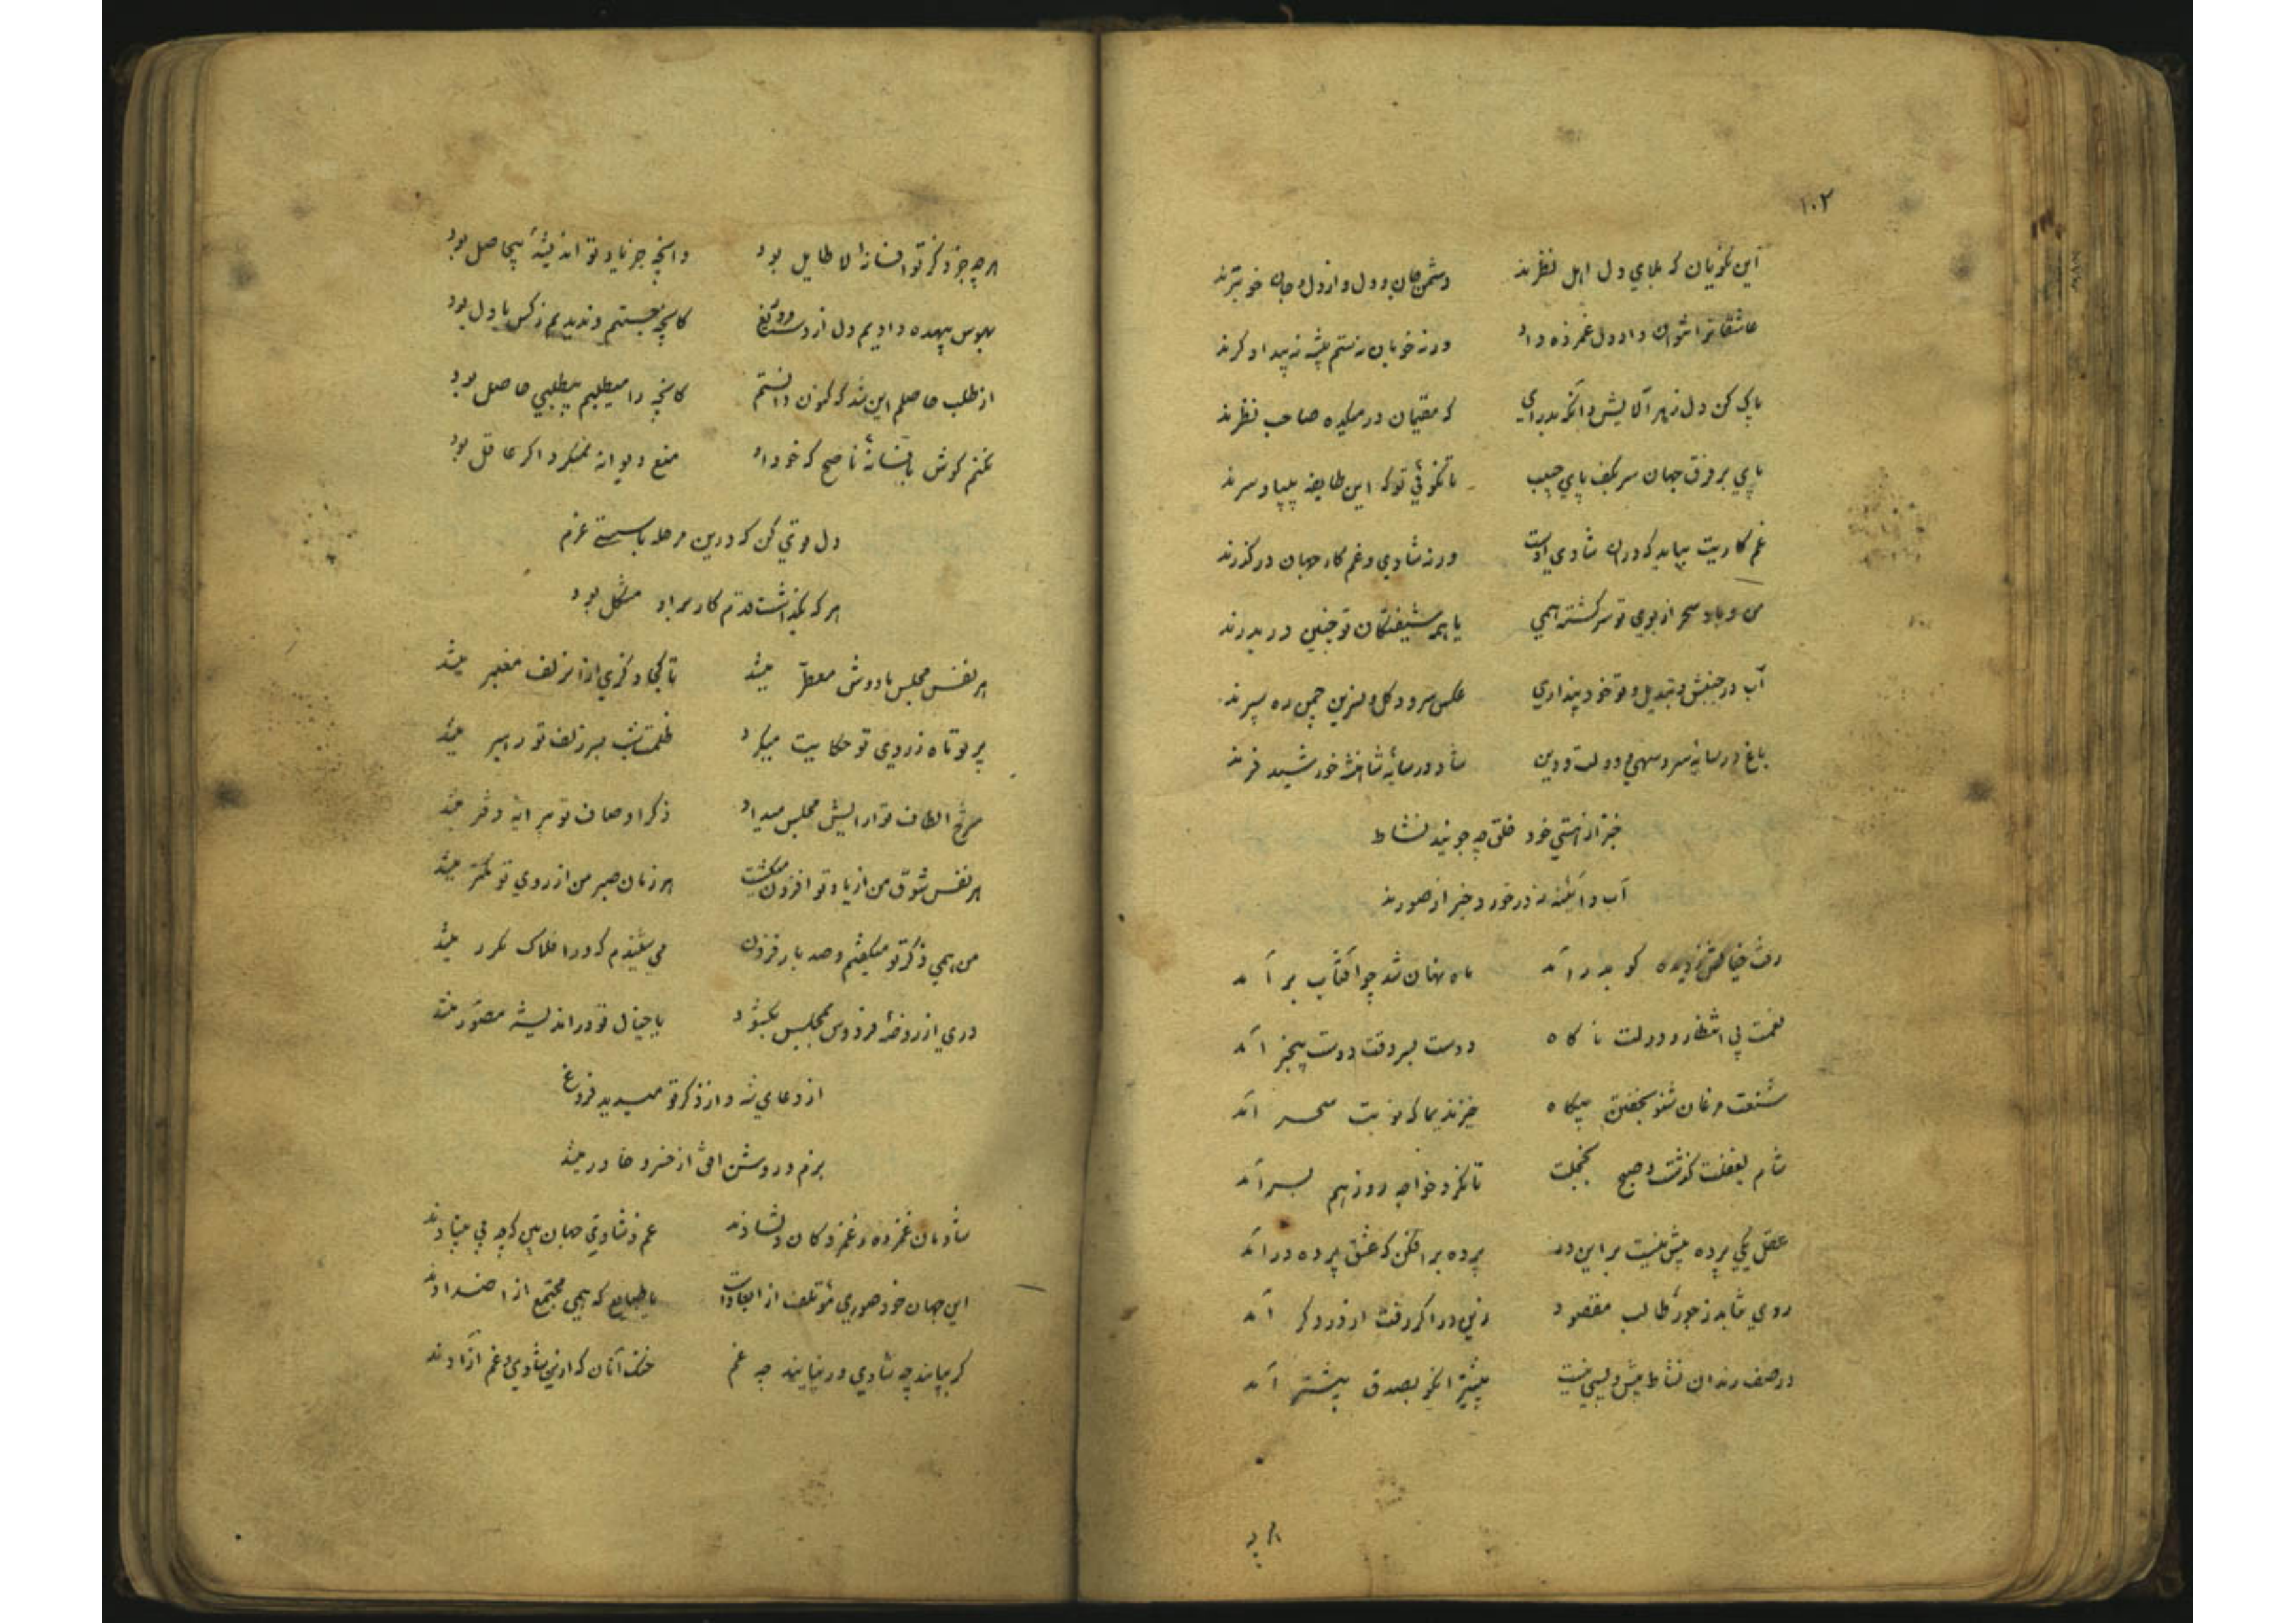 ۱۰۲
این نکویان که بلای دل اهل نظرند دشمن جان و دل و از دل و جان خوبترند
عاشقانرا نتوان داد دل غمزده داد ورنه خوبان نه ستم پیشه نه بیدادگرند
پاک کن دل زهر آلایش وانگه بدرآی که مقیمان در میکده صاحب نظرند
پای بر فرق جهان سر بکف پای حبیب تا نکوئی تو که این طایفه بیپا و سرند
غم کاریت بباید که در آن شادی اوست ورنه شادی و غم کار جهان در گذرند
من و باد سحر از بوی تو سرگشته همی یا همه شیفتگان تو چنین دربدرند
آب در جنبش و تبدیل و تو خود پنداری عکس سرو و گل و نسرین چمن ره سپرند
باغ در سایه سرو سهی و دولت و دین شاد در سایه شاهنشه خورشید فرند
خبر از هستی خود خلق چه جویند نشاط
آب و آئینه نه در خورد خبر از صورند
رفت خیالش ز دیده کو بدر آمد ماه نهان شد چو آفتاب بر آمد
نعمت بی انتظار و دولت ناگاه دوست بسر وقت دوست بیخبر آمد
مشنعت مرغان شنو بخفتن بیگاه خیز ندیما که نوبت سحر آمد
شام بغفلت گذشت و صبح بخجلت تا نکرد خواجه روز هم بسر آمد
عقل یکی پرده پیش نیست بر این در پرده برافکن که عشق پرده در آمد
روی متابد ز جور طالب مقصود زین در اگر رفت از در دگر آمد
در صف رندان نشاط پیش و پسی نیست پیشتر آنکو بصدق بیشتر آمد
هر چه
هر چه جز ذکر تو افسانهٔ لا طایل بود وانچه جز یاد تو اندیشهٔ بیحاصل بود
بهوس بیهده دادیم دل از دست و دریغ کانچه جستیم و ندیدیم ز کس با دل بود
از طلب حاصلم این شد که کنون دانستم کانچه را میطلبم بیطلبی حاصل بود
نکنم گوش بافسانهٔ ناصح که خود او منع دیوانه نمیکرد اگر عاقل بود
دل قوی کن که درین مرحله با سستی عزم
هر که بگذاشت قدم کار بر او مشکل بود
هر نفس مجلس ما دوش معطر میشد تا کجا ذکری از آن زلف معنبر میشد
پرتو ماه ز روی تو حکایت میکرد ظلمت شب بسر زلف تو رهبر میشد
شرح الطاف تو آرایش مجلس میداد ذکر اوصاف تو پیرایه دفتر میشد
هر نفس شوق من از یاد تو افزون میگشت هر زمان صبر من از روی تو کمتر میشد
من همی ذکر تو میگفتم و صد بار فزون می شنیدم که در افلاک مکرر میشد
دری از روضهٔ فردوس بمجلس بگشود با خیال تو در اندیشه مصور میشد
از دعای شه و از ذکر تو میدید فروغ
بزم و روشن افق از خسرو خاور میشد
شادمان غمزده و غمزدگان دلشادند غم و شادی جهان بین که چه بی بنیادند
این جهان خود صوری مؤتلف از ابعاد است یا طبایع که همی مجتمع از اضدادند
گر بپایند چه شادی ور نپایند چه غم خنک آنان که ازین شادی و غم آزادند